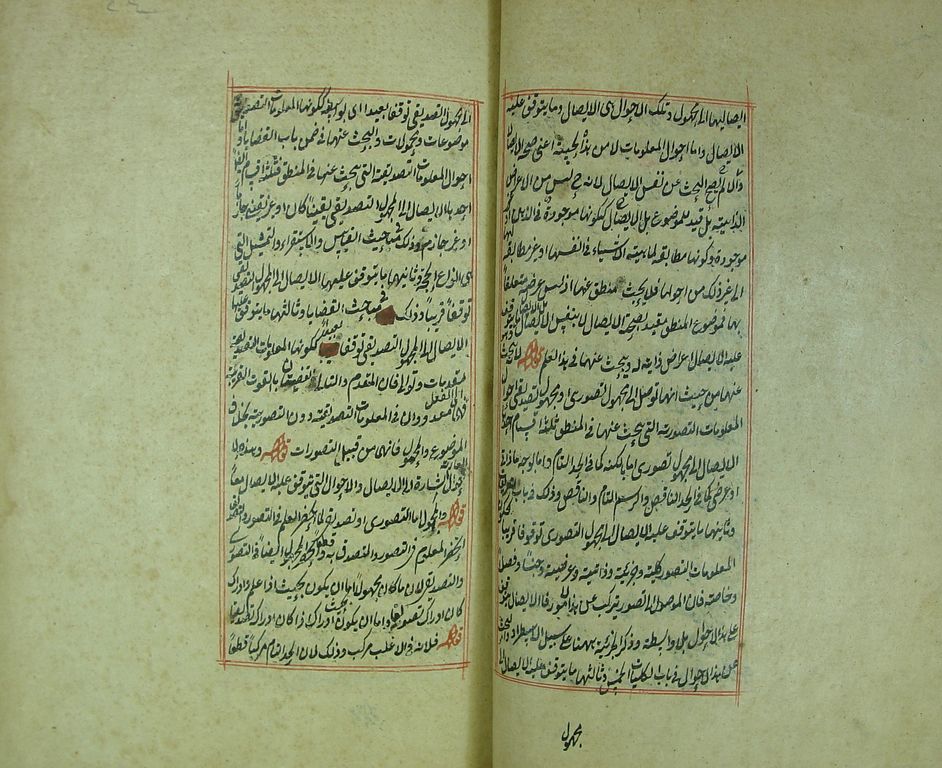 الايصال اليها الى المجهول وتلك الاحوال هى الايصال وما يتوقف عليه
الايصال واما احوال المعلومات لا من هذه الحيثية اعنى صحة الايصال
والا لم يصح البحث عن نفس الايصال لانه ح ليس من الاعراض
الذاتية بل قيد للموضوع بل الايصال ككونها موجودة فى الذهن او غير
موجودة وكونها مطابقة لماهية الاشياء فى انفسها او غير مطابقة لها
الى غير ذلك من احوالها فلا يبحث منطق عنها اذ ليس غرضه متعلقا
بها فموضوع المنطق مقيد بصحة الايصال لا بنفس الايصال
عليه الايصال اعراض ذاتية له يبحث عنها فى هذا العلم قوله يبحث
عنها من حيث انها توصل الى مجهول تصورى او مجهول تصديقى احوال
المعلومات التصورية التى يبحث عنها فى المنطق ثلثة اقسام احدها
الايصال الى مجهول تصورى اما بالكنه كما فى الحد التام واما بوجه ما ذاتى
او عرضى كما فى الحد الناقص والرسم التام والناقص وذلك فى باب
وثانيها ما يتوقف عليه الايصال الى المجهول التصورى توقفا قريبا
المعلومات التصورية كلية وجزئية وذاتية وعرضية وجنسا وفصلا
وخاصة فان الموصل الى التصور يتركب عن هذه الامور فالايصال يتوقف
على هذه الاحوال بلا واسطة وذكر الجزئية ههنا على سبيل الاستطراد والبحث
عن هذه الاحوال فى باب الكليات الخمس وثالثها ما يتوقف عليه الايصال
مجهول
الى المجهول التصديقى توقفا بعيدا اى بواسطة ككونها المعلومات التصورية
موضوعات ومحمولات والبحث عنها فى ضمن باب القضايا واما
احوال المعلومات التصديقية التى يبحث عنها فى المنطق فثلثة اقسام ايضا
احدها الايصال الى المجهول التصديقى يقينيا كان او غير يقينى جازما
او غير جازم وذلك فى مباحث القياس والاستقراء والتمثيل التى
هى انواع الحجة وثانيها ما يتوقف عليها الايصال الى المجهول التصديقى
توقفا قريبا وذلك فى مباحث القضايا وثالثها ما يتوقف عليه
الايصال الى المجهول التصديقى توقفا بعيدا ككونها المعلومات التصديقية
مقدمات وتوالى فان المقدم والتالى قضيتان بالقوة القريبة
من الفعل فهما معدودان فى المعلومات التصديقية دون التصورية بخلاف
الموضوع والمحمول فانهما من قبيل التصورات قوله وهذه الا
حوال اشارة الى الايصال والاحوال التى يتوقف عليها الايصال معا
قوله والمجهول اما التصورى او تصديقى لما انحصر العلم فى التصور والتصديق
انحصر المعلوم فى المتصور والمتصدق به وقطعا انحصر المجهول ايضا فى التصورى
والتصديقى لان ما كان مجهولا اما ان يكون بحيث اذا علم وادرك
كان ادراكه تصورا واما ان يكون بحيث اذا ادرك كان ادراكه تصديقا
قوله فلانه فى الاغلب مركب وذلك لان الحد التام مركبا قطعا